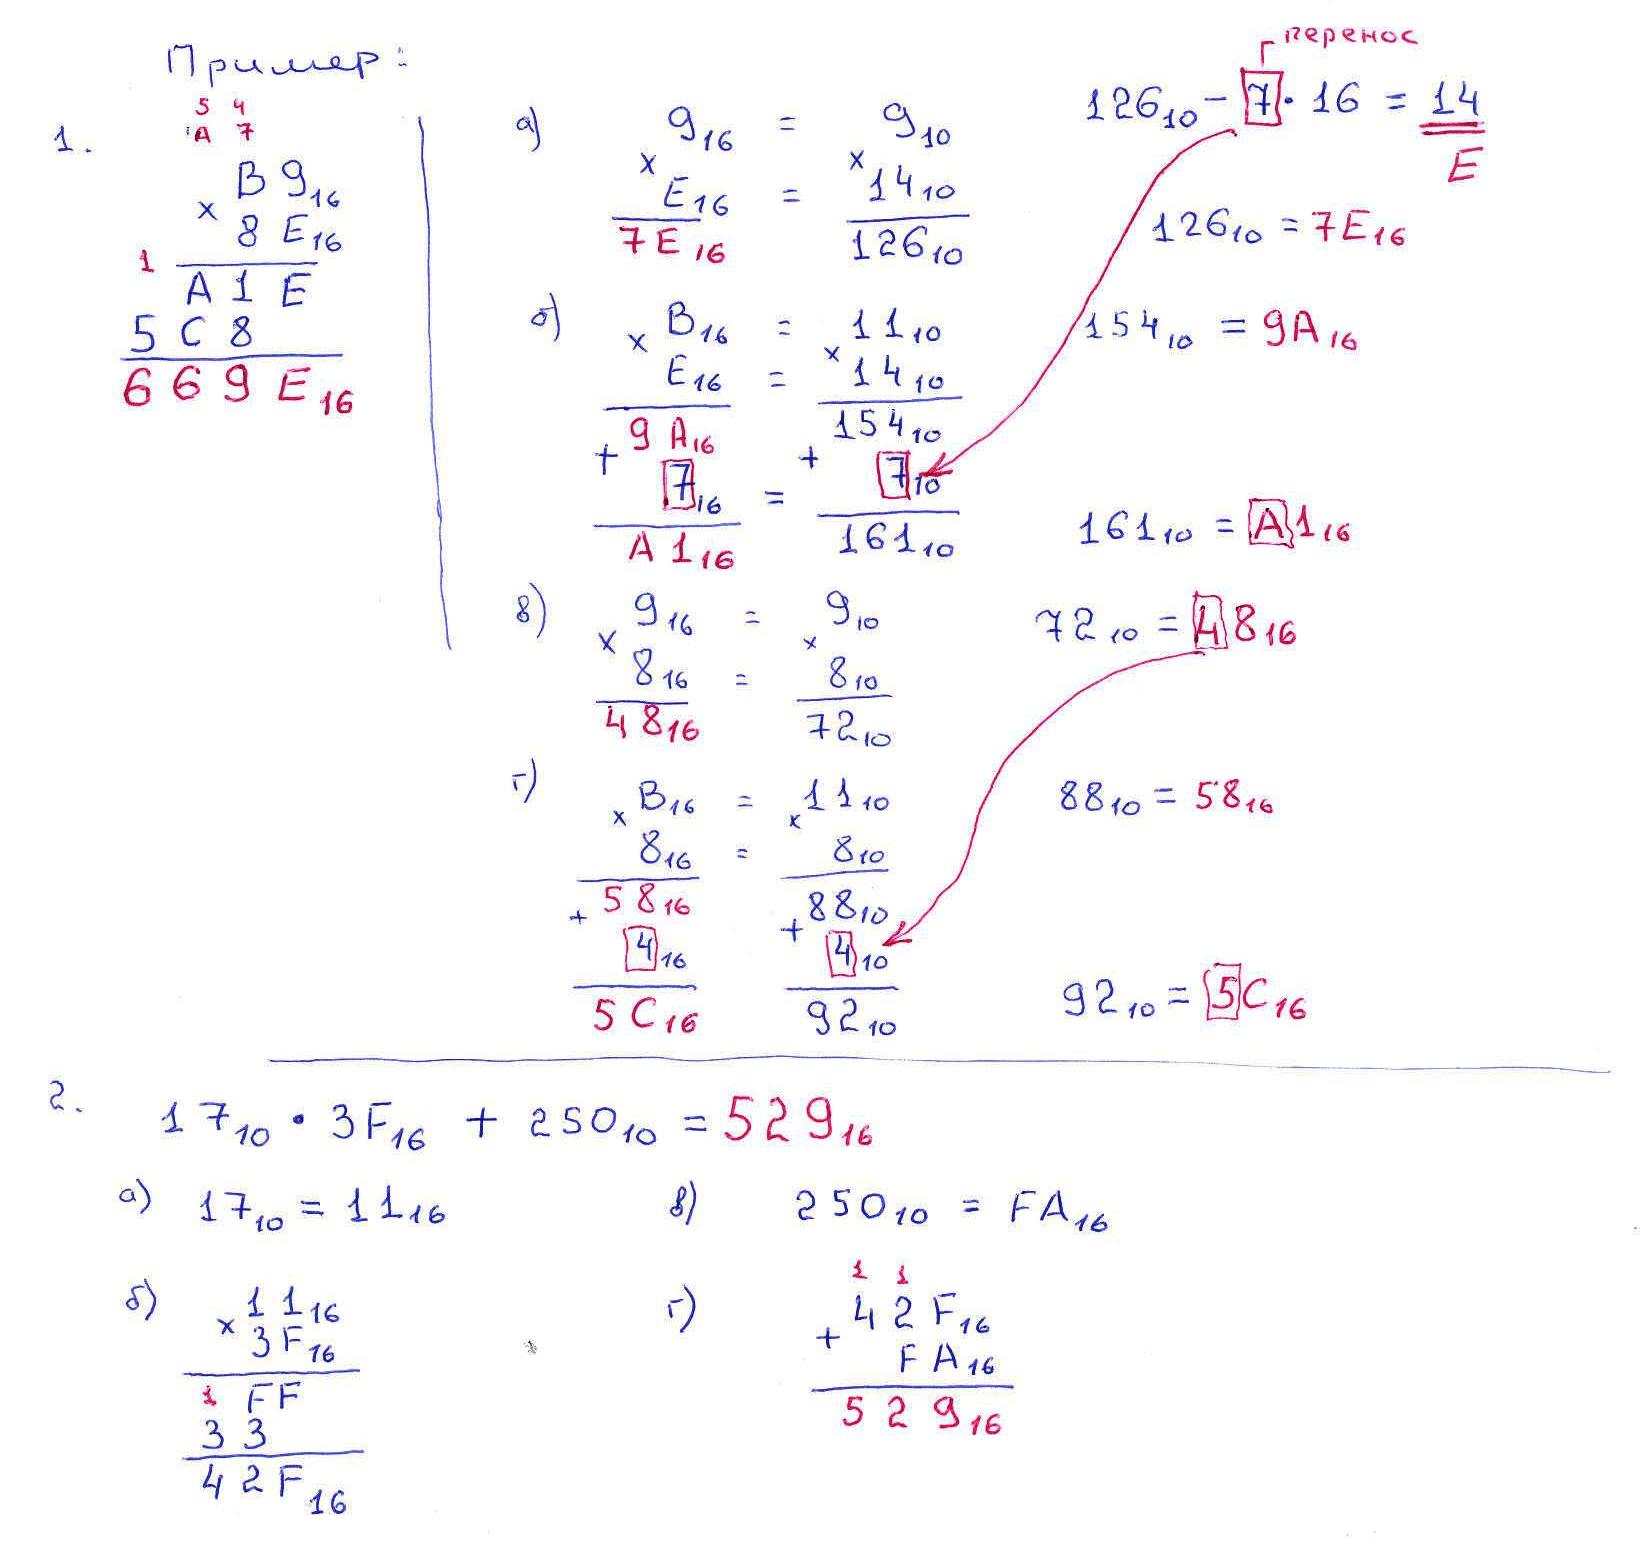 Пример:
1.
5 4
A 7
B 9₁₆
× 8 E₁₆
1
A 1 E
5 C 8
6 6 9 E₁₆
а) 9₁₆ = 9₁₀
× E₁₆ = × 14₁₀
7E₁₆ 126₁₀
перенос
126₁₀ - 7 · 16 = 14
E
126₁₀ = 7E₁₆
б) × B₁₆ = × 11₁₀
E₁₆ = 14₁₀
9A₁₆ 154₁₀
+ 7₁₆ = + 7₁₀
A1₁₆ 161₁₀
154₁₀ = 9A₁₆
161₁₀ = A1₁₆
в) × 9₁₆ = × 9₁₀
8₁₆ = 8₁₀
48₁₆ 72₁₀
72₁₀ = 48₁₆
г) × B₁₆ = × 11₁₀
8₁₆ = 8₁₀
58₁₆ 88₁₀
+ 4₁₆ + 4₁₀
5C₁₆ 92₁₀
88₁₀ = 58₁₆
92₁₀ = 5C₁₆
2.
17₁₀ · 3F₁₆ + 250₁₀ = 529₁₆
а) 17₁₀ = 11₁₆
б) × 11₁₆
3F₁₆
1 FF
33
42F₁₆
в) 250₁₀ = FA₁₆
г)
1 1
+ 42F₁₆
FA₁₆
529₁₆